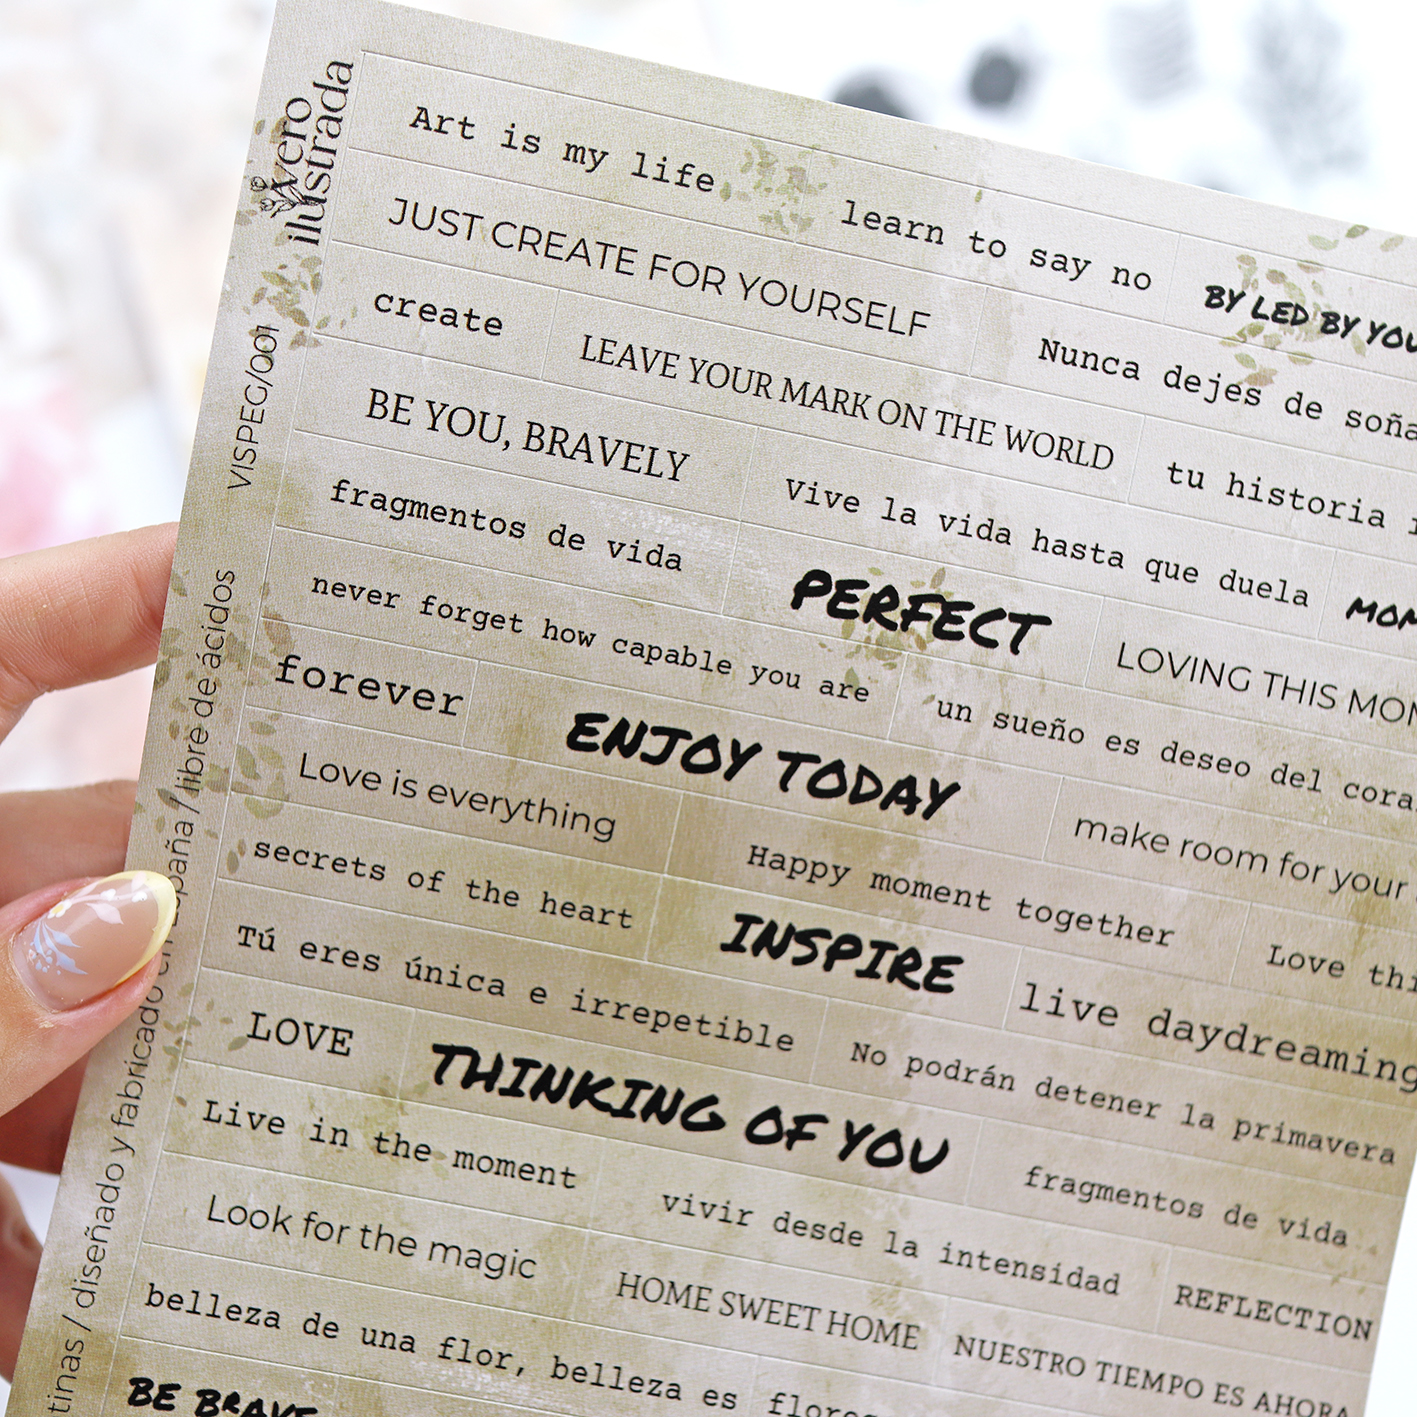 vero
ilustrada
VISPEG/001
/ diseñado y fabricado en España / libre de ácidos
Art is my life
learn to say no
BY LED BY
JUST CREATE FOR YOURSELF
Nunca dejes de
create
LEAVE YOUR MARK ON THE WORLD
tu historia
BE YOU, BRAVELY
Vive la vida hasta que duela
fragmentos de vida
PERFECT
LOVING THIS
never forget how capable you are
un sueño es deseo del
forever
ENJOY TODAY
make room for your
Love is everything
Happy moment together
Love
secrets of the heart
INSPIRE
live daydreaming
Tú eres única e irrepetible
No podrán detener la primavera
LOVE
THINKING OF YOU
fragmentos de vida
Live in the moment
vivir desde la intensidad
REFLECTION
Look for the magic
HOME SWEET HOME
NUESTRO TIEMPO ES AHORA
belleza de una flor, belleza es
BE BRAVE